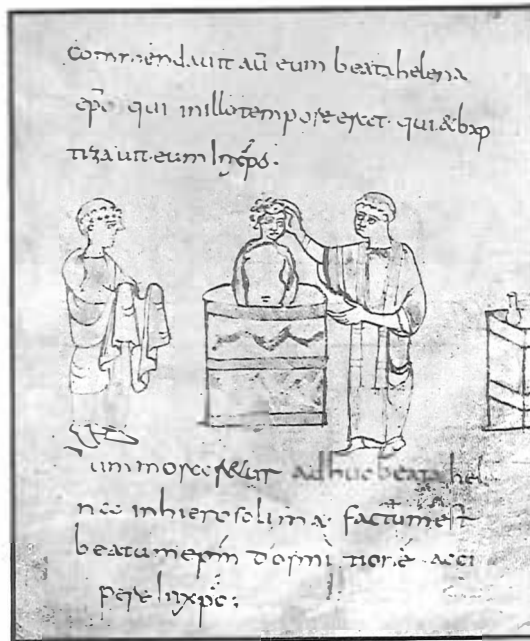 commendauit aū eum beata helena
ep̄o qui inillo tempore eret · qui & bap
tizauit · eum In xp̄o ·
adhuc beata hel
in hierosolima · factum est
beatum ep̄m dormi tione acci
pere In xp̄o :